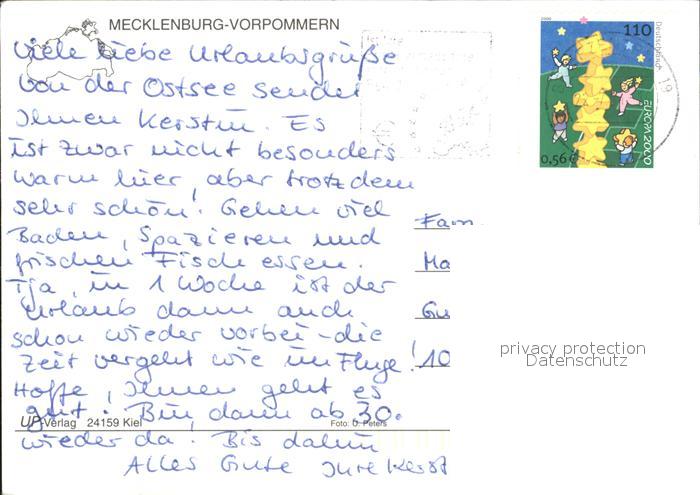 MECKLENBURG-VORPOMMERN
Viele liebe Urlaubsgrüße
von der Ostsee sendet
Ihnen Kerstin. Es
ist zwar nicht besonders
warm hier, aber trotzdem
sehr schön! Gehen viel
Baden, Spazieren und
frischen Fisch essen.
Tja, in 1 Woche ist der
Urlaub dann auch
schon wieder vorbei - die
Zeit vergeht wie im Fluge!
Hoffe, Ihnen geht es
gut. Bin dann ab 30.
wieder da. Bis dahin
Alles Gute Ihre Kerst
UP-Verlag 24159 Kiel
Foto: U. Peters
2000
110
Deutschland
EUROPA 2000
0,56 €
19
Fam
Ma
Gu
10
privacy protection
Datenschutz